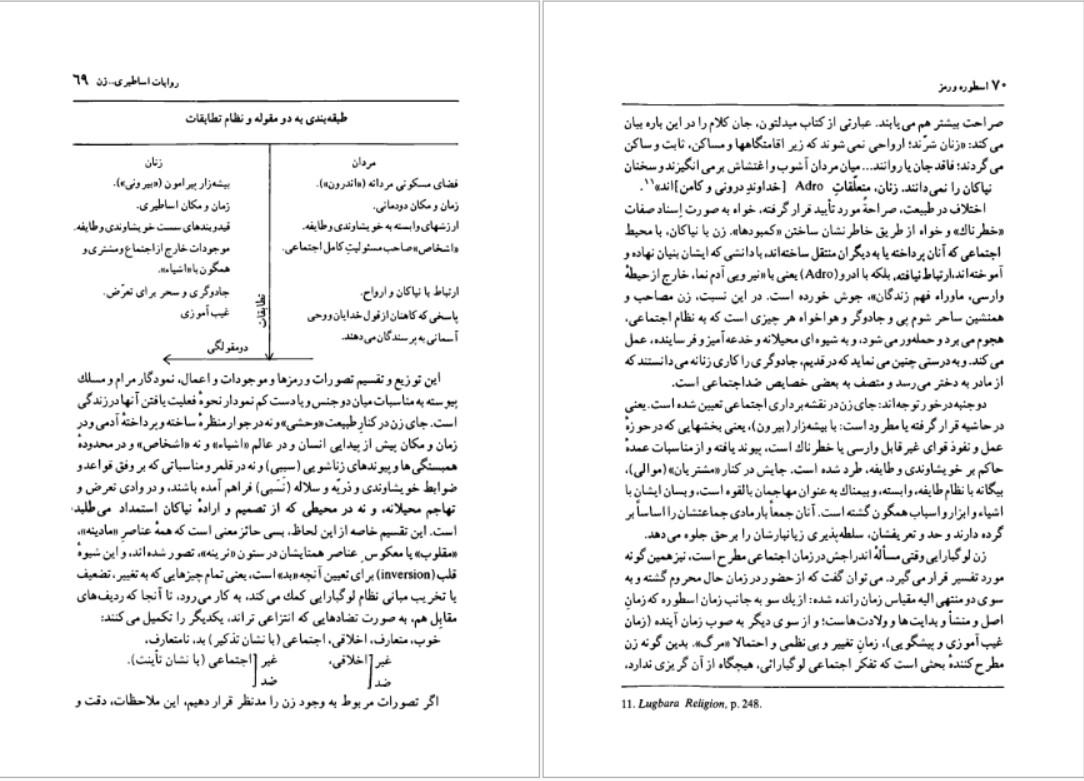 روایات اساطیری...زن ٦٩
طبقه‌بندی به دو مقوله و نظام تطابقات
مردان
زنان
فضای مسکونی مردانه («اندرون»).
بیشه‌زار پیرامون («بیرونی»).
زمان و مکان دودمانی.
زمان و مکان اساطیری.
ارزشهای وابسته به خویشاوندی و طایفه.
قیدوبندهای سست خویشاوندی وطایفه.
«اشخاص» صاحب مسئولیتِ کامل اجتماعی.
موجودات خارج از اجتماع ومشتری و
همگون با «اشیاء».
ارتباط با نیاکان و ارواح.
جادوگری و سحر برای تعرّض.
پاسخی که کاهنان از قول خدایان ووحی
غیب‌آموزی
آسمانی به پرسندگان می‌دهند.
تطابقات
دومقولگی
این توزیع و تقسیم تصورات ورمزها و موجودات و اعمال، نمودگار مرام و مسلك
پیوسته به مناسبات میان دو جنس و یا دست کم نمودار نحوهٔ فعلیت یافتن آنها در زندگی
است. جای زن در کنارِ طبیعت «وحشی» و نه در جوار منظرهٔ ساخته و پرداختهٔ آدمی و در
زمان و مکان پیش از پیدایی انسان و در عالم «اشیاء» و نه «اشخاص» و در محدودهٔ
همبستگی‌ها و پیوندهای زناشویی (سببی) و نه در قلمرو مناسباتی که بر وفق قواعد و
ضوابط خویشاوندی و ذریّه و سلاله (نَسَبی) فراهم آمده باشند، و در وادی تعرض و
تهاجم محیلانه، و نه در محیطی که از تصمیم و ارادهٔ نیاکان استمداد می‌طلبد
است. این تقسیم خاصه از این لحاظ، بسی حائز معنی است که همهٔ عناصرِ «مادینه»،
«مقلوب» یا معکوسِ عناصر همتایشان در ستون «نرینه»، تصور شده‌اند، و این شیوهٔ
قلب (inversion) برای تعیین آنچه «بد» است، یعنی تمام چیزهایی که به تغییر، تضعیف
یا تخریب مبانی نظام لوگبارایی کمك می‌کند، به کار می‌رود، تا آنجا که ردیف‌های
مقابل هم، به صورت تضادهایی که انتزاعی‌تراند، یکدیگر را تکمیل می‌کنند:
خوب، متعارف، اخلاقی، اجتماعی (با نشان تذکیر) بد، نامتعارف،
غیر [اخلاقی، غیر [اجتماعی (با نشان تأنیث).
ضد ضد
اگر تصورات مربوط به وجود زن را مدنظر قرار دهیم، این ملاحظات، دقت و
٧٠ اسطوره و رمز
صراحت بیشتر هم می‌یابند. عبارتی از کتاب میدلتون، جان کلام را در این باره بیان
می‌کند: «زنان شرّند؛ ارواحی نمی‌شوند که زیر اقامتگاهها و مساکن، ثابت و ساکن
می‌گردند؛ فاقد جان یا روانند... میان مردان آشوب و اغتشاش برمی‌انگیزند و سخنان
نیاکان را نمی‌دانند. زنان، متعلّقاتِ Adro [خداوندِ درونی و کامن] اند»۱۱.
اختلاف در طبیعت، صراحةً مورد تأیید قرار گرفته، خواه به صورت اِسناد صفات
«خطرناك» و خواه از طریق خاطرنشان ساختن «کمبودها». زن با نیاکان، با محیط
اجتماعی که آنان پرداخته یا به دیگران منتقل ساخته‌اند، با دانشی که ایشان بنیان نهاده و
آموخته‌اند، ارتباط نیافته، بلکه با ادرو (Adro) یعنی با «نیرویی آدم‌نما، خارج از حیطهٔ
وارسی، ماوراء فهم زندگان»، جوش خورده است. در این نسبت، زن مصاحب و
همنشین ساحر شوم‌پی و جادوگر و هواخواه هر چیزی است که به نظام اجتماعی،
هجوم می‌برد و حمله‌ور می‌شود، و به شیوه‌ای محیلانه و خدعه‌آمیز و فرساینده، عمل
می‌کند. وبه درستی چنین می‌نماید که در قدیم، جادوگری را کاری زنانه می‌دانستند که
از مادر به دختر می‌رسد و متصف به بعضی خصایص ضداجتماعی است.
دو جنبه درخور توجه‌اند: جای زن در نقشه‌برداری اجتماعی تعیین شده است. یعنی
در حاشیه قرار گرفته یا مطرود است: با بیشه‌زار (بیرون)، یعنی بخشهایی که در حوزهٔ
عمل و نفوذ قوای غیرقابل وارسی یا خطرناك است، پیوند یافته و از مناسبات عمدهٔ
حاکم بر خویشاوندی و طایفه، طرد شده است. جایش در کنار «مشتریان» (موالی)،
بیگانه با نظام طایفه، وابسته، و بیمناك به عنوان مهاجمان بالقوه است، و بسان ایشان با
اشیاء و ابزار و اسباب همگون گشته است. آنان جمعاً بار مادی جماعتشان را اساساً بر
گرده دارند و حد و تعریفشان، سلطه‌پذیری زیانبارشان را برحق جلوه می‌دهد.
زن لوگبارایی وقتی مسألهٔ اندراجش در زمان اجتماعی مطرح است، نیز همین گونه
مورد تفسیر قرار می‌گیرد. می‌توان گفت که از حضور در زمان حال محروم گشته و به
سوی دو منتهی‌الیه مقیاس زمان رانده شده: از یك سو به جانب زمان اسطوره که زمانِ
اصل و منشأ و بدایت‌ها و ولادت‌هاست؛ و از سوی دیگر به صوب زمان آینده (زمان
غیب‌آموزی و پیشگویی)، زمانِ تغییر و بی‌نظمی و احتمالا «مرگ». بدین گونه زن
مطرح کنندهٔ بحثی است که تفکر اجتماعی لوگبارائی، هیچگاه از آن گریزی ندارد،
11. Lugbara Religion, p. 248.